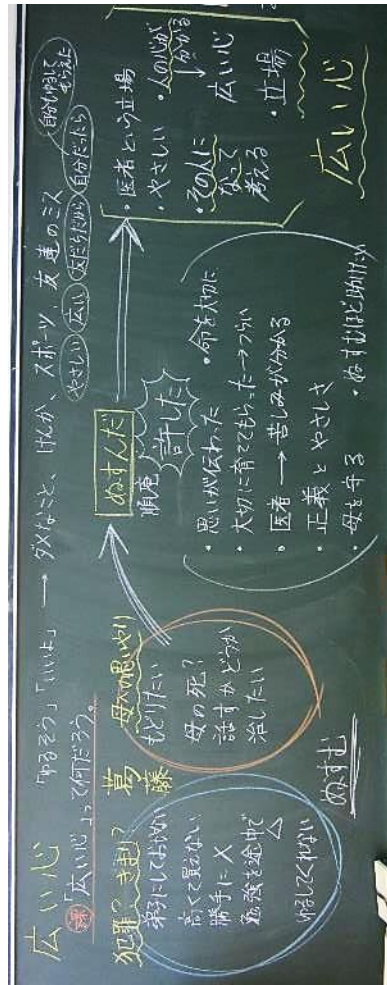 広い心
「ゆるそう」「いいよ」 → ダメなこと、けんか、スポーツ、友達のミス
「広い心」って何だろう。
やさしい
広い
友だちだから
自分だったら
自分もゆるしてもらえた
犯罪？きまり？
弟子にしておけない
高くて買えない
勝手に ✕
勉強を途中で △
ゆるしてくれない
葛藤
母への思いやり
もどりたい
母の死？
話すかどうか
治したい
ぬすむ
ぬすんだ
順庵
許した
・思いが伝わった
・命を大切に
・大切に育ててもらった→つらい
・医者 → 苦しみが分かる
・正義とやさしさ
・母を守る
・ぬすむほど助けたい
・医者という立場
・やさしい
・その人になって考える
・人の心が分かる
↓
広い心
・立場
広い心